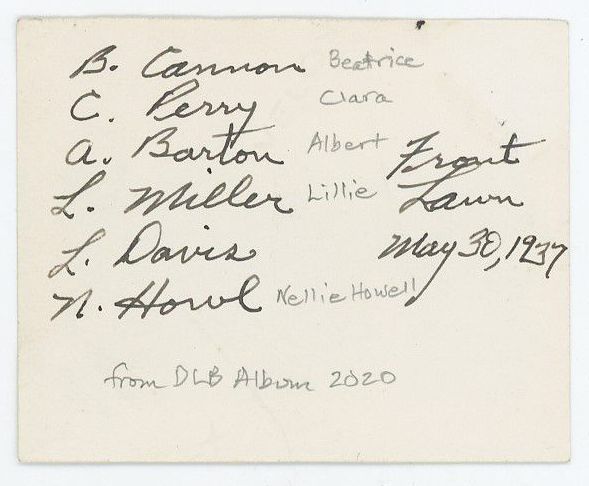 B. Cannon Beatrice
C. Perry Clara
A. Barton Albert Front
L. Miller Lillie Lawn
L. Davis May 30, 1937
N. Howl Nellie Howell
from DLB Album 2020